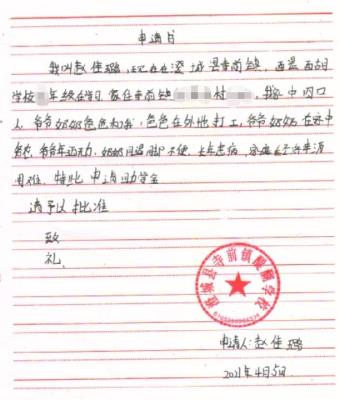 申请书
我叫赵佳璐,现在在澄城县寺前镇醍醐
学校 年级在学习,家住寺前镇 村 我家中四口
人,爷爷奶奶爸爸和我,爸爸在外地打工,爷爷奶奶在家中
务农,爷爷年迈无力,奶奶 腿脚不便,长年患病,家庭 经济来源
困难,特此申请助学金
请予以批准
致
礼
澄城县寺前镇醍醐学校
申请人:赵佳璐
2021年4月5日